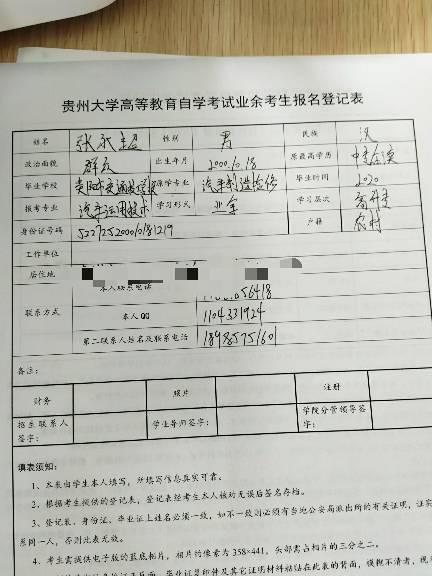 贵州大学高等教育自学考试业余考生报名登记表
姓名 张永超 性别 男 民族 汉
政治面貌 群众 出生年月 2000.10.18 原最高学历
毕业学校 原学专业 汽车制造检修 毕业时间 2020
报考专业 汽车运用技术 学习形式 业余 学习层次
身份证号码 522725200010181219 户籍 农村
工作单位
居住地
联系方式 本人联系电话 056418
本人QQ 1104331924
第二联系人姓名及联系电话 18985751601
备注:
财务 照片 注册
招生联系人签字: 学业导师签字: 学院分管领导签字:
填表须知:
1、本表由学生本人填写,所填写信息真实可靠。
2、根据考生提供的登记表,登记表经考生本人核对无误后签名存档。
3、登记表、身份证、毕业证上姓名必须一致,如不一致则必须有当地公安局派出所的有关证明,证实
系同一人,否则此表无效。
4、考生需提供电子版的蓝底相片,相片的像素为358×441,头部需占相片的三分之二。